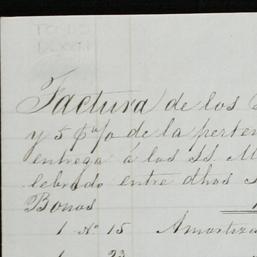 Factura de los
y 5 p% de la perten
entrega á los SS. M
lebrado entre dhos
Bonos
1 Nº 15 Amortiza
1 22